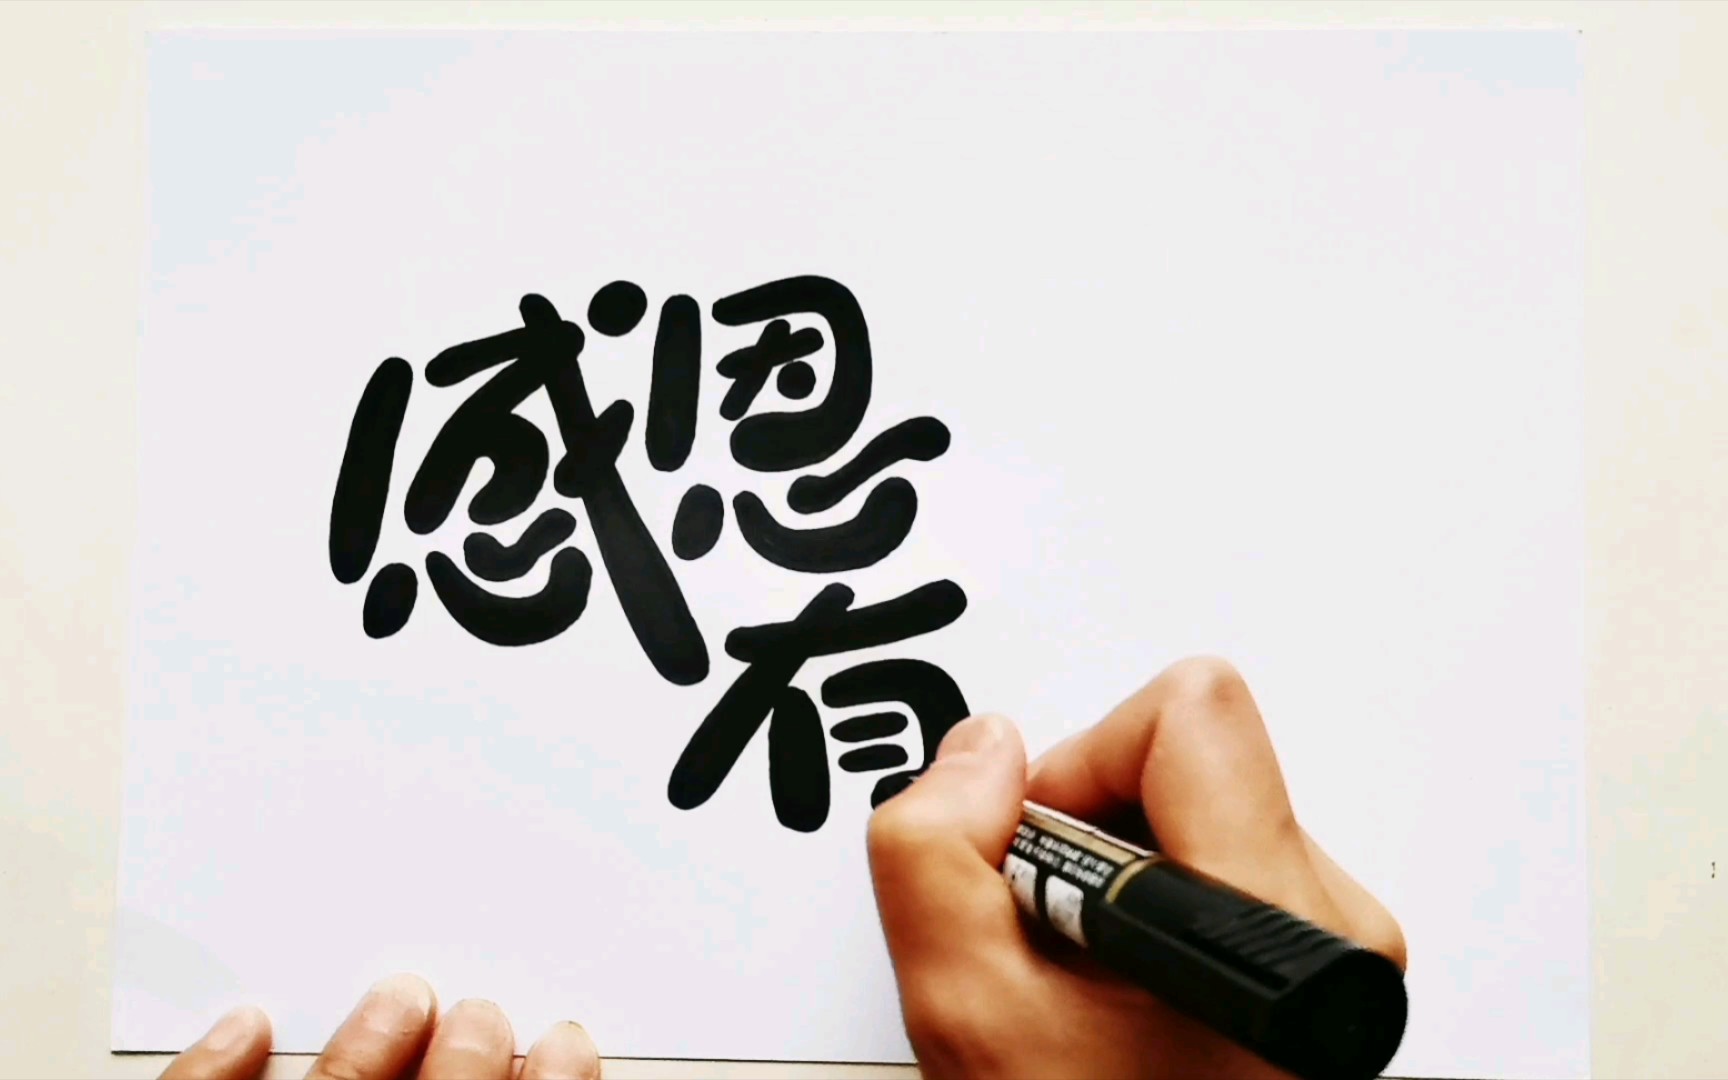 感恩
有